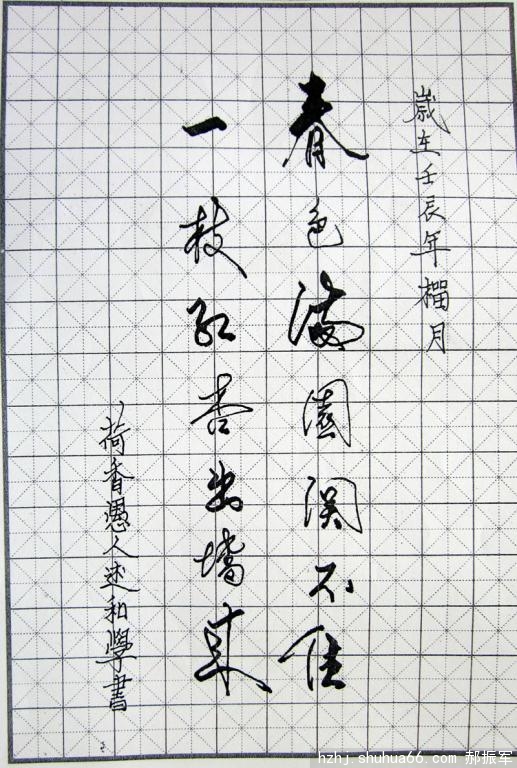 歲在壬辰年榴月
春色满園関不住
一枝红杏出墙來
荷香愚人述和學書
hzhj.shuhua66.com 郝振军